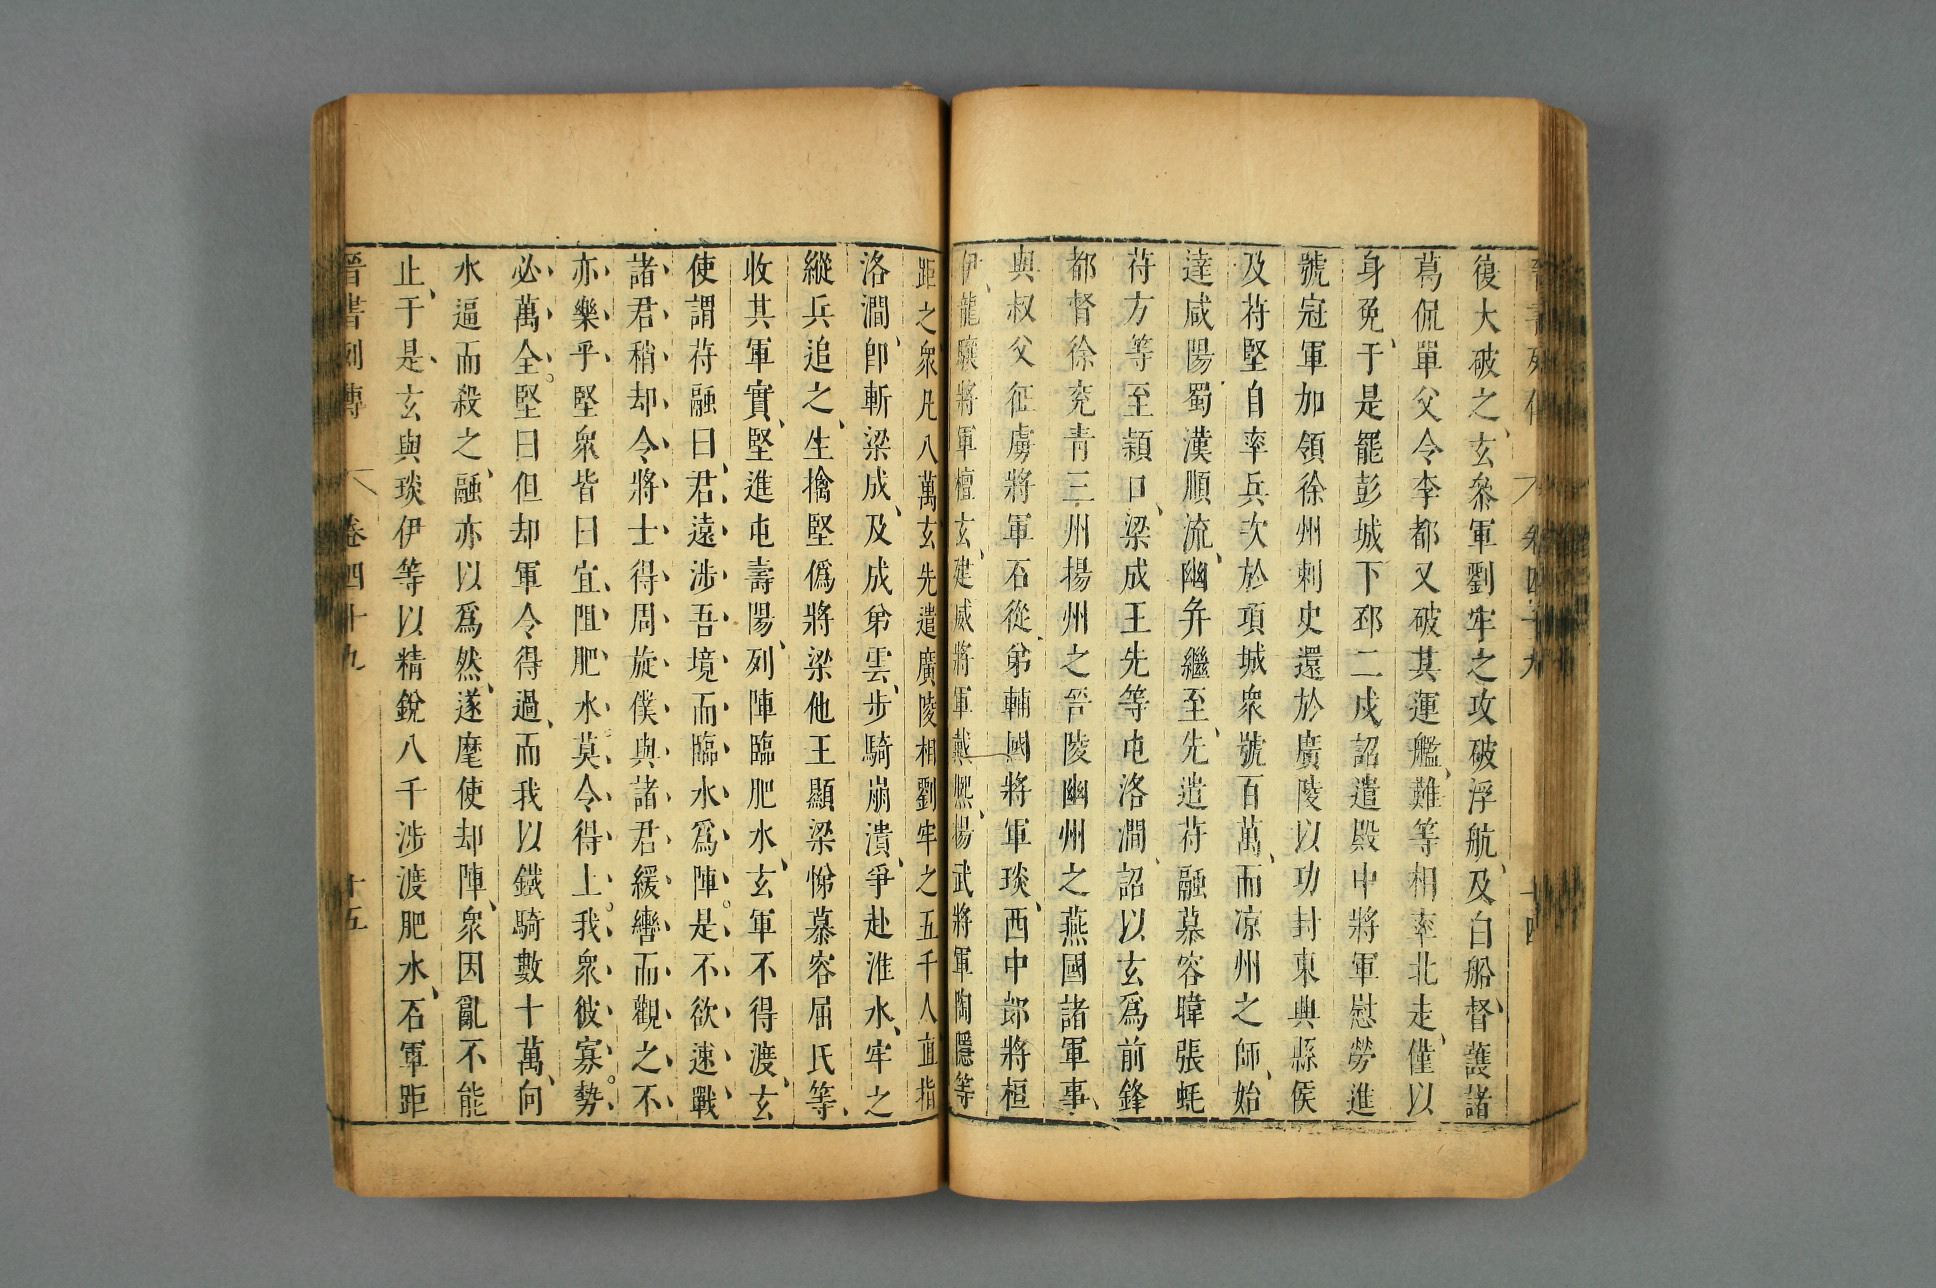 晉書列傳 卷四十九 十四
復大破之玄叅軍劉牢之攻破浮航及白船督護諸
葛侃單父令李都又破其運艦難等相率北走僅以
身免于是罷彭城下邳二戍詔遣殿中將軍慰勞進
號冠軍加領徐州刺史還於廣陵以功封東興縣侯
及苻堅自率兵次於項城衆號百萬而凉州之師始
達咸陽蜀漢順流幽并繼至先遣苻融慕容暐張蚝
苻方等至潁口梁成王先等屯洛澗詔以玄爲前鋒
都督徐兖青三州揚州之晉陵幽州之燕國諸軍事
與叔父征虜將軍石從弟輔國將軍琰西中郎將桓
伊龍驤將軍檀玄建威將軍戴熙揚武將軍陶隱等
距之衆凡八萬玄先遣廣陵相劉牢之五千人直指
洛澗卽斬梁成及成弟雲步騎崩潰爭赴淮水牢之
縱兵追之生擒堅僞將梁他王顯梁悌慕容屈氏等
收其軍實堅進屯壽陽列陣臨肥水玄軍不得渡玄
使謂苻融曰君遠涉吾境而臨水爲陣是不欲速戰
諸君稍却令將士得周旋僕與諸君緩轡而觀之不
亦樂乎堅衆皆曰宜阻肥水莫令得上我衆彼寡勢
必萬全堅曰但却軍令得過而我以鐵騎數十萬向
水逼而殺之融亦以爲然遂麾使却陣衆因亂不能
止于是玄與琰伊等以精銳八千涉渡肥水石軍距
晉書列傳 卷四十九 十五